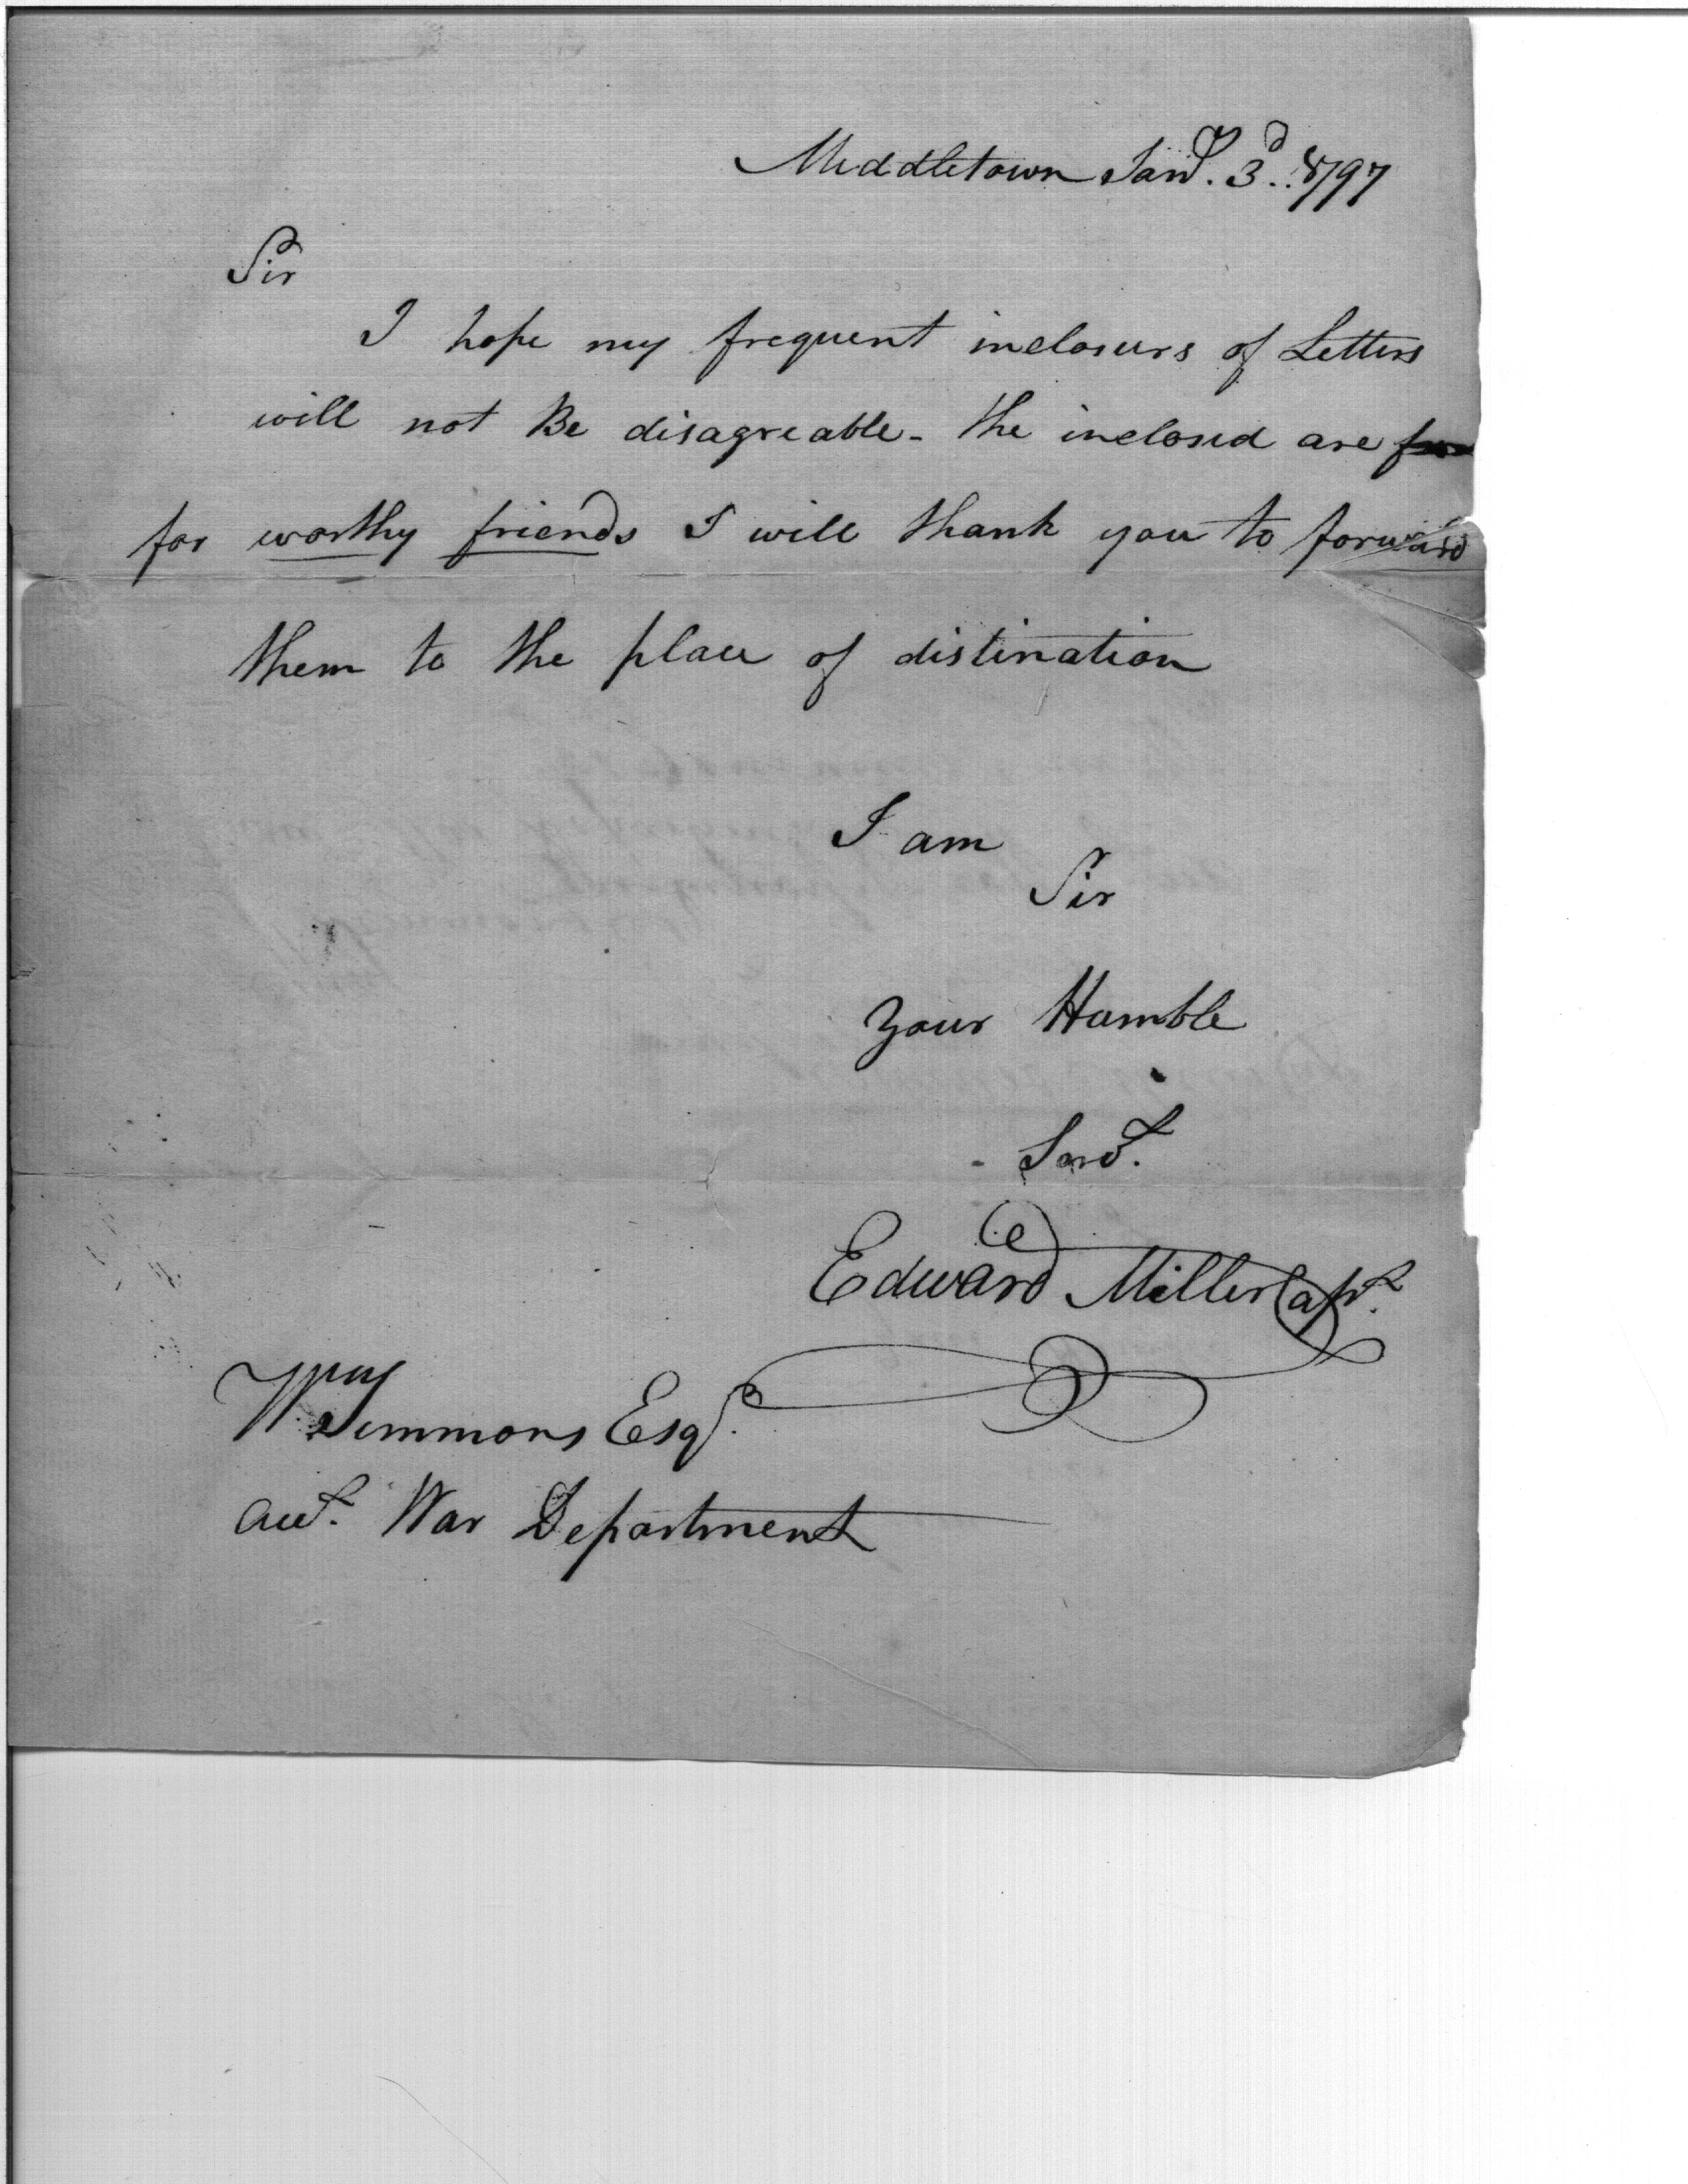 Middletown Jany. 3d. 1797
Sir
I hope my frequent inclosurs of Letters
will not Be disagreable - the inclosed are
for worthy friends I will thank you to forward
them to the place of distination
I am
Sir
Your Humble
Servt.
Edward Miller Capt.
Wm Simmons Esqr.
Acct. War Department